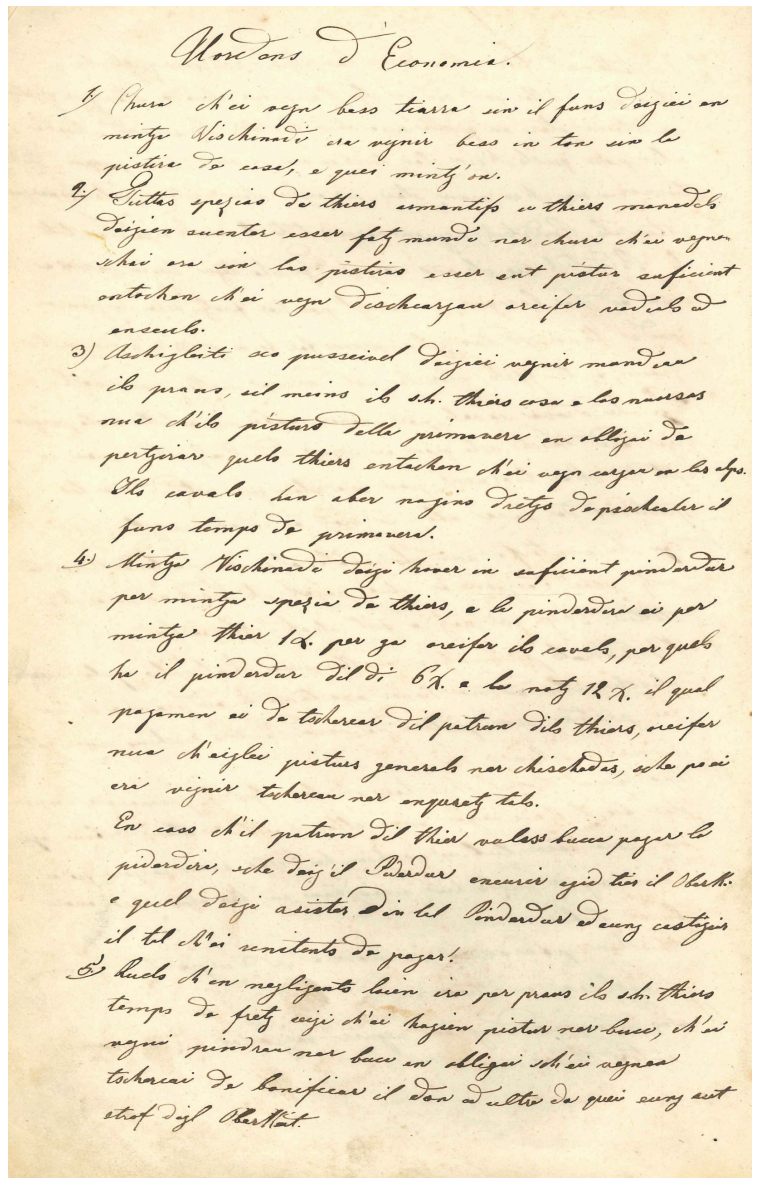 Uordens d'Economia.
1) Chura ch'ei vegn bess tiarra sin il funs deigiei en
mintga Vischinadi era vignir bess in ton sin la
pistira da casa, e quei mintg'on.
2) Tuttas spezias da thiers armantifs a thiers manedels
deigien suenter esser fatg mundi ner chura ch'ei vegnen
schai ora sin las pistiras esser ent pistur suficient
entochen ch'ei vegn dischcargau oreifer vadials ad
anseuls.
3) Aschigleiti sco pusseivel deigiei vegnir mundau
ils praus, sil meins ils sh. thiers casa a las nuorsas
nua ch'ils pisturs della primavera en obligai da
pertgirar quels thiers entochen ch'ei vegn cargau en las alps.
Ils cavals han aber nagins dretgs da pischcular il
funs temps da primavera.
4.) Mintga Vischinadi deigi haver in suficient pinderdur
per mintga spezia da thiers, a la pinderdira ei per
mintga thier 1 x. per ga oreifer ils cavals, per quels
ha il pinderdur dil di 6 x. a la notg 12 x. il qual
pagamen ei da tscharcar dil patrun dils thiers, oreifer
nua ch'eiglei pisturs generals ner chischadas, sche po ei
era vignir tschercau ner enquretg tals.
En caso ch'il patrun dil thier vuless bucca pagar la
piderdira, sche deig'il Piderdur encurir agid tier il Obertt.
e quel deigi asister Din tal Pinderdur ad eung castigiar
il tal ch'ei renitents da pagar.
5.) Quels ch'en negligents laien ira per praus ils sh. thiers
temps da fretg seigi ch'ei hagien pistur ner bucc, ch'ei
vegni pindrau ner bucc en obligai sch'ei vegnen
tschercai de bonificar il don ad ultra da quei eung aut
strof digl Obertt.